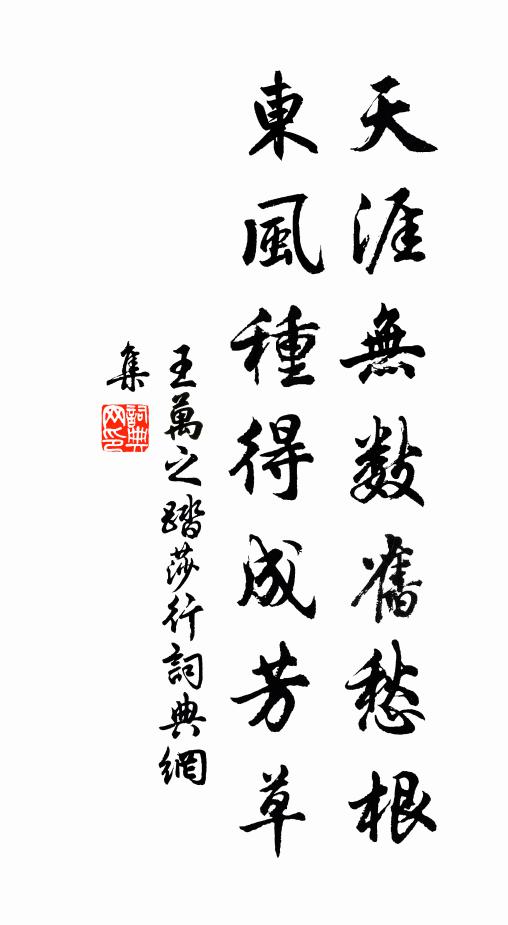 天涯無數舊愁根
東風種得成芳草
王萬之踏莎行詞典網
集
詞典網印